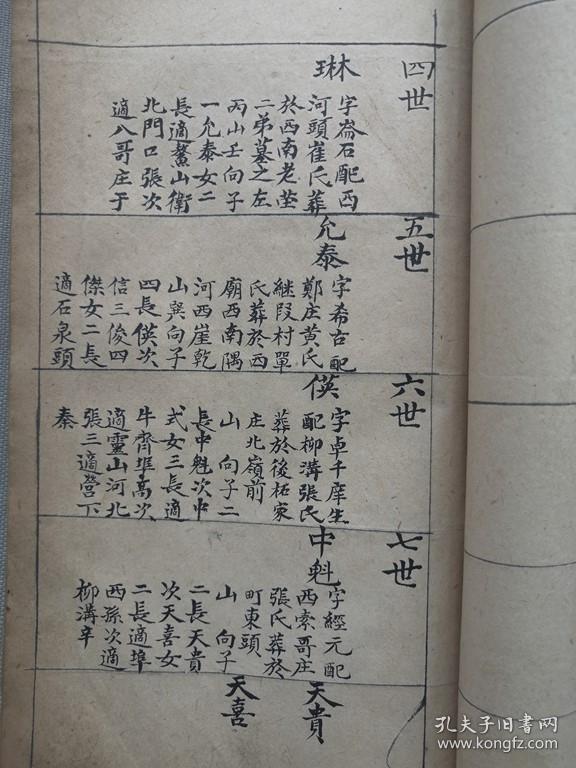 四世
琳
字崙石配西
河頭崔氏葬
於西南老塋
二弟墓之左
丙山壬向子
一允泰女二
長適鰲山衛
北門口張次
適八哥庄于
五世
允泰
字希古配
鄭庄黄氏
継段村單
氏葬於西
廟西南隅
河西崖乾
山巽向子
四長偀次
信三俊四
傑女二長
適石泉頭
六世
偀
字卓千庠生
配柳溝張氏
葬於後柘家
庄北嶺前
山 向子二
長中魁次中
式女三長適
牛齊埠髙次
適靈山河北
張三適營下
秦
七世
中魁
字經元配
西索哥庄
張氏葬於
町東頭
山 向子
二長天貴
次天喜女
二長適埠
西孫次適
柳溝辛
天貴
天喜
孔夫子旧书网
www.kongfz.com